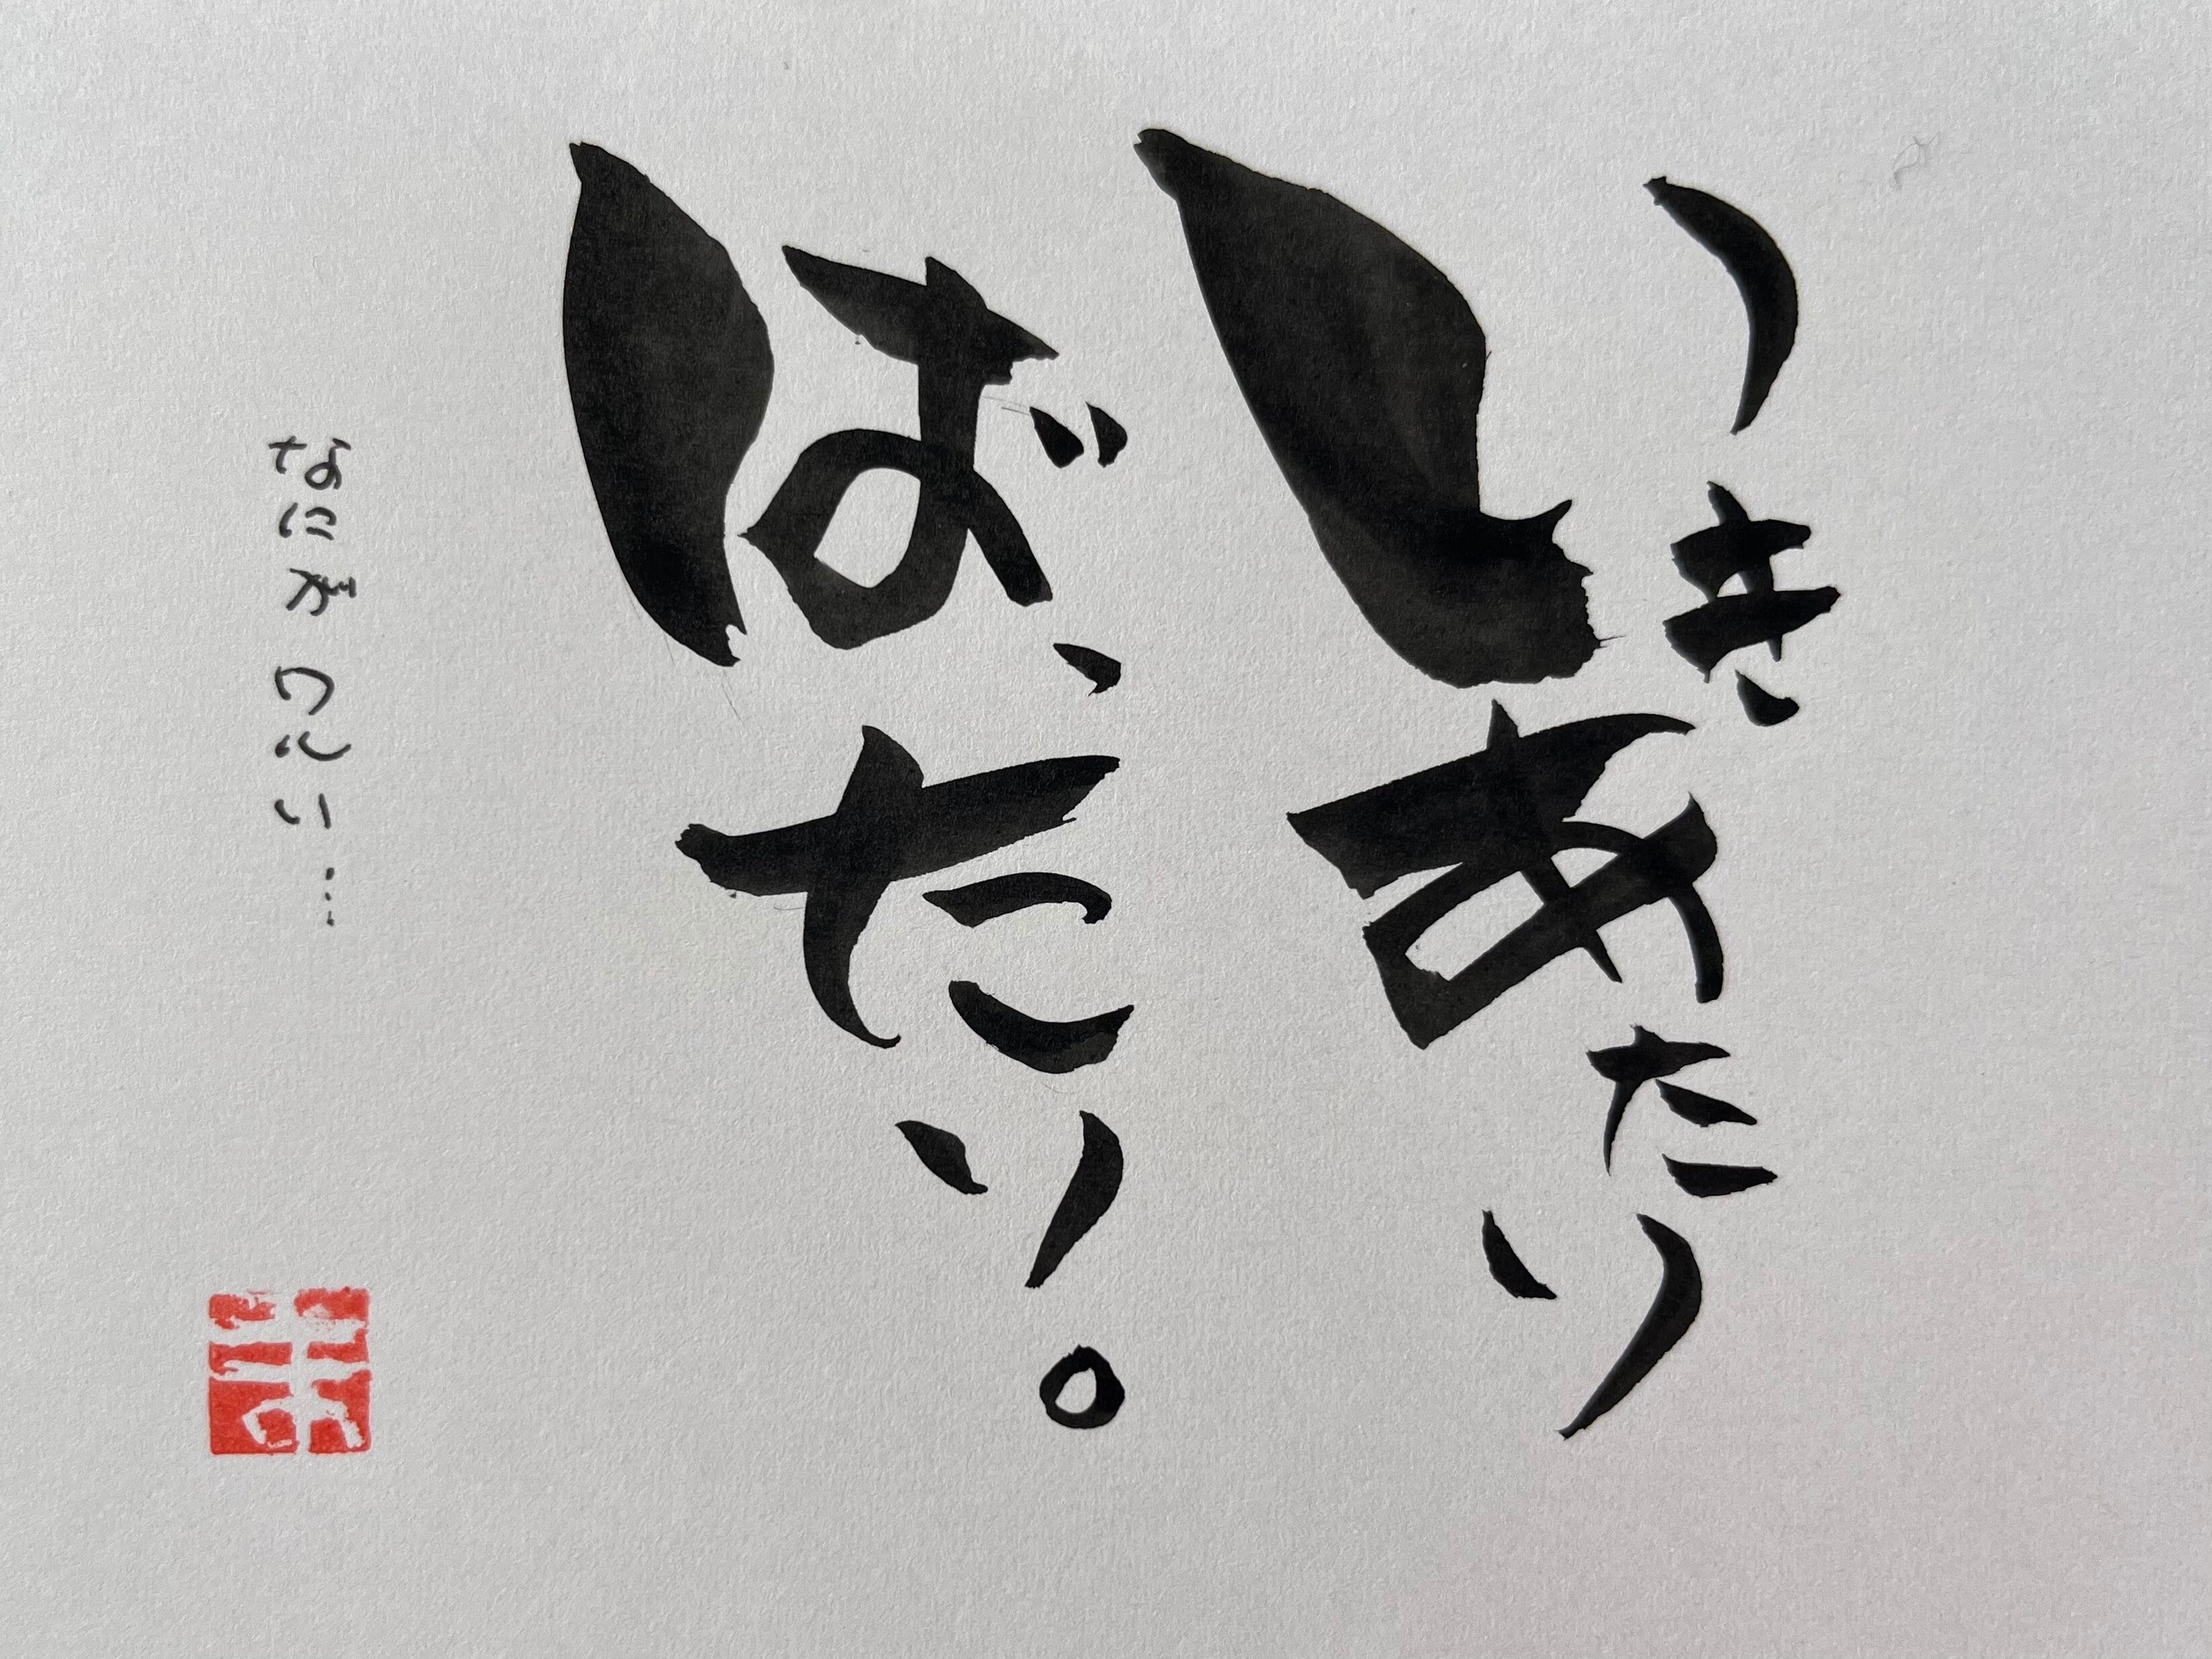 いきあたり
ば、たり。
なにが ワルい…